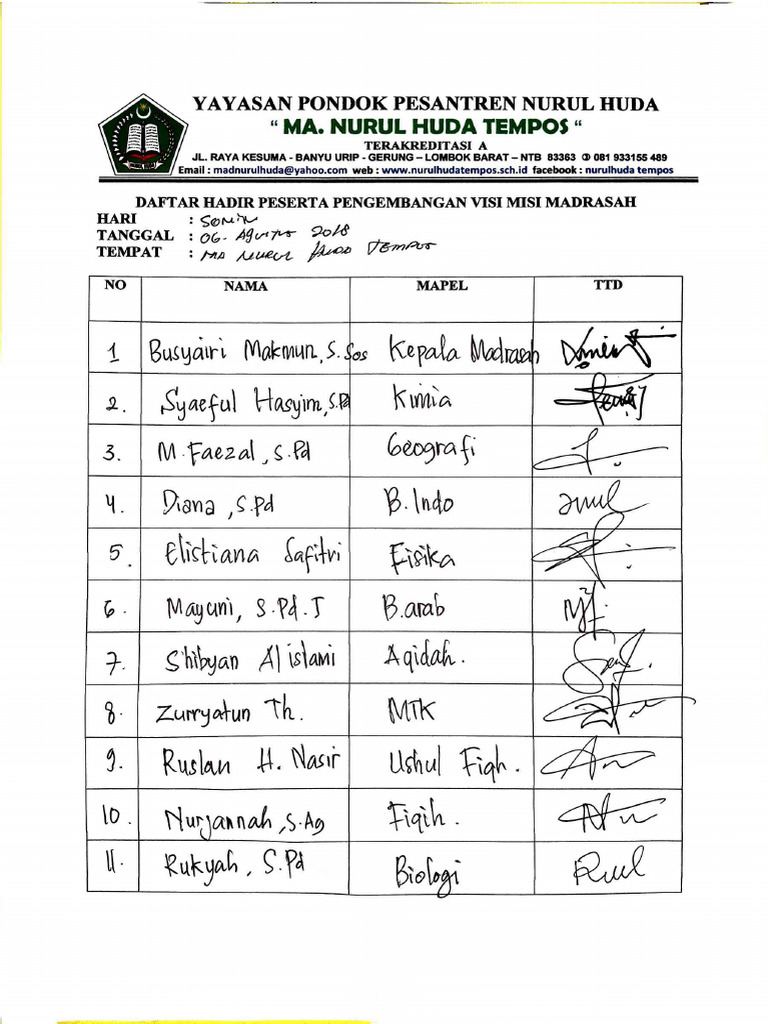 YAYASAN PONDOK PESANTREN NURUL HUDA
“ MA. NURUL HUDA TEMPOS “
TERAKREDITASI A
JL. RAYA KESUMA - BANYU URIP - GERUNG – LOMBOK BARAT – NTB 83363 ✆ 081 933155 489
Email : madnurulhuda@yahoo.com web : www.nurulhudatempos.sch.id facebook : nurulhuda tempos
DAFTAR HADIR PESERTA PENGEMBANGAN VISI MISI MADRASAH
HARI : SENIN
TANGGAL : 06. Agustus 2018
TEMPAT : MA NURUL HUDA TEMPOS
NO NAMA MAPEL TTD
1 Busyairi Makmun, S.Sos Kepala Madrasah
2. Syaeful Hasyim, S.Pd Kimia
3. M. Faezal, S.Pd Geografi
4. Diana, S.Pd B. Indo
5. Elistiana Safitri Fisika
6. Mayuni, S.Pd.I B. arab
7. Shibyan Al islami Aqidah.
8. Zurryatun Th. MTK
9. Ruslan H. Nasir Ushul Fiqh.
10. Nurjannah, S.Ag Fiqih.
11. Rukyah, S.Pd Biologi